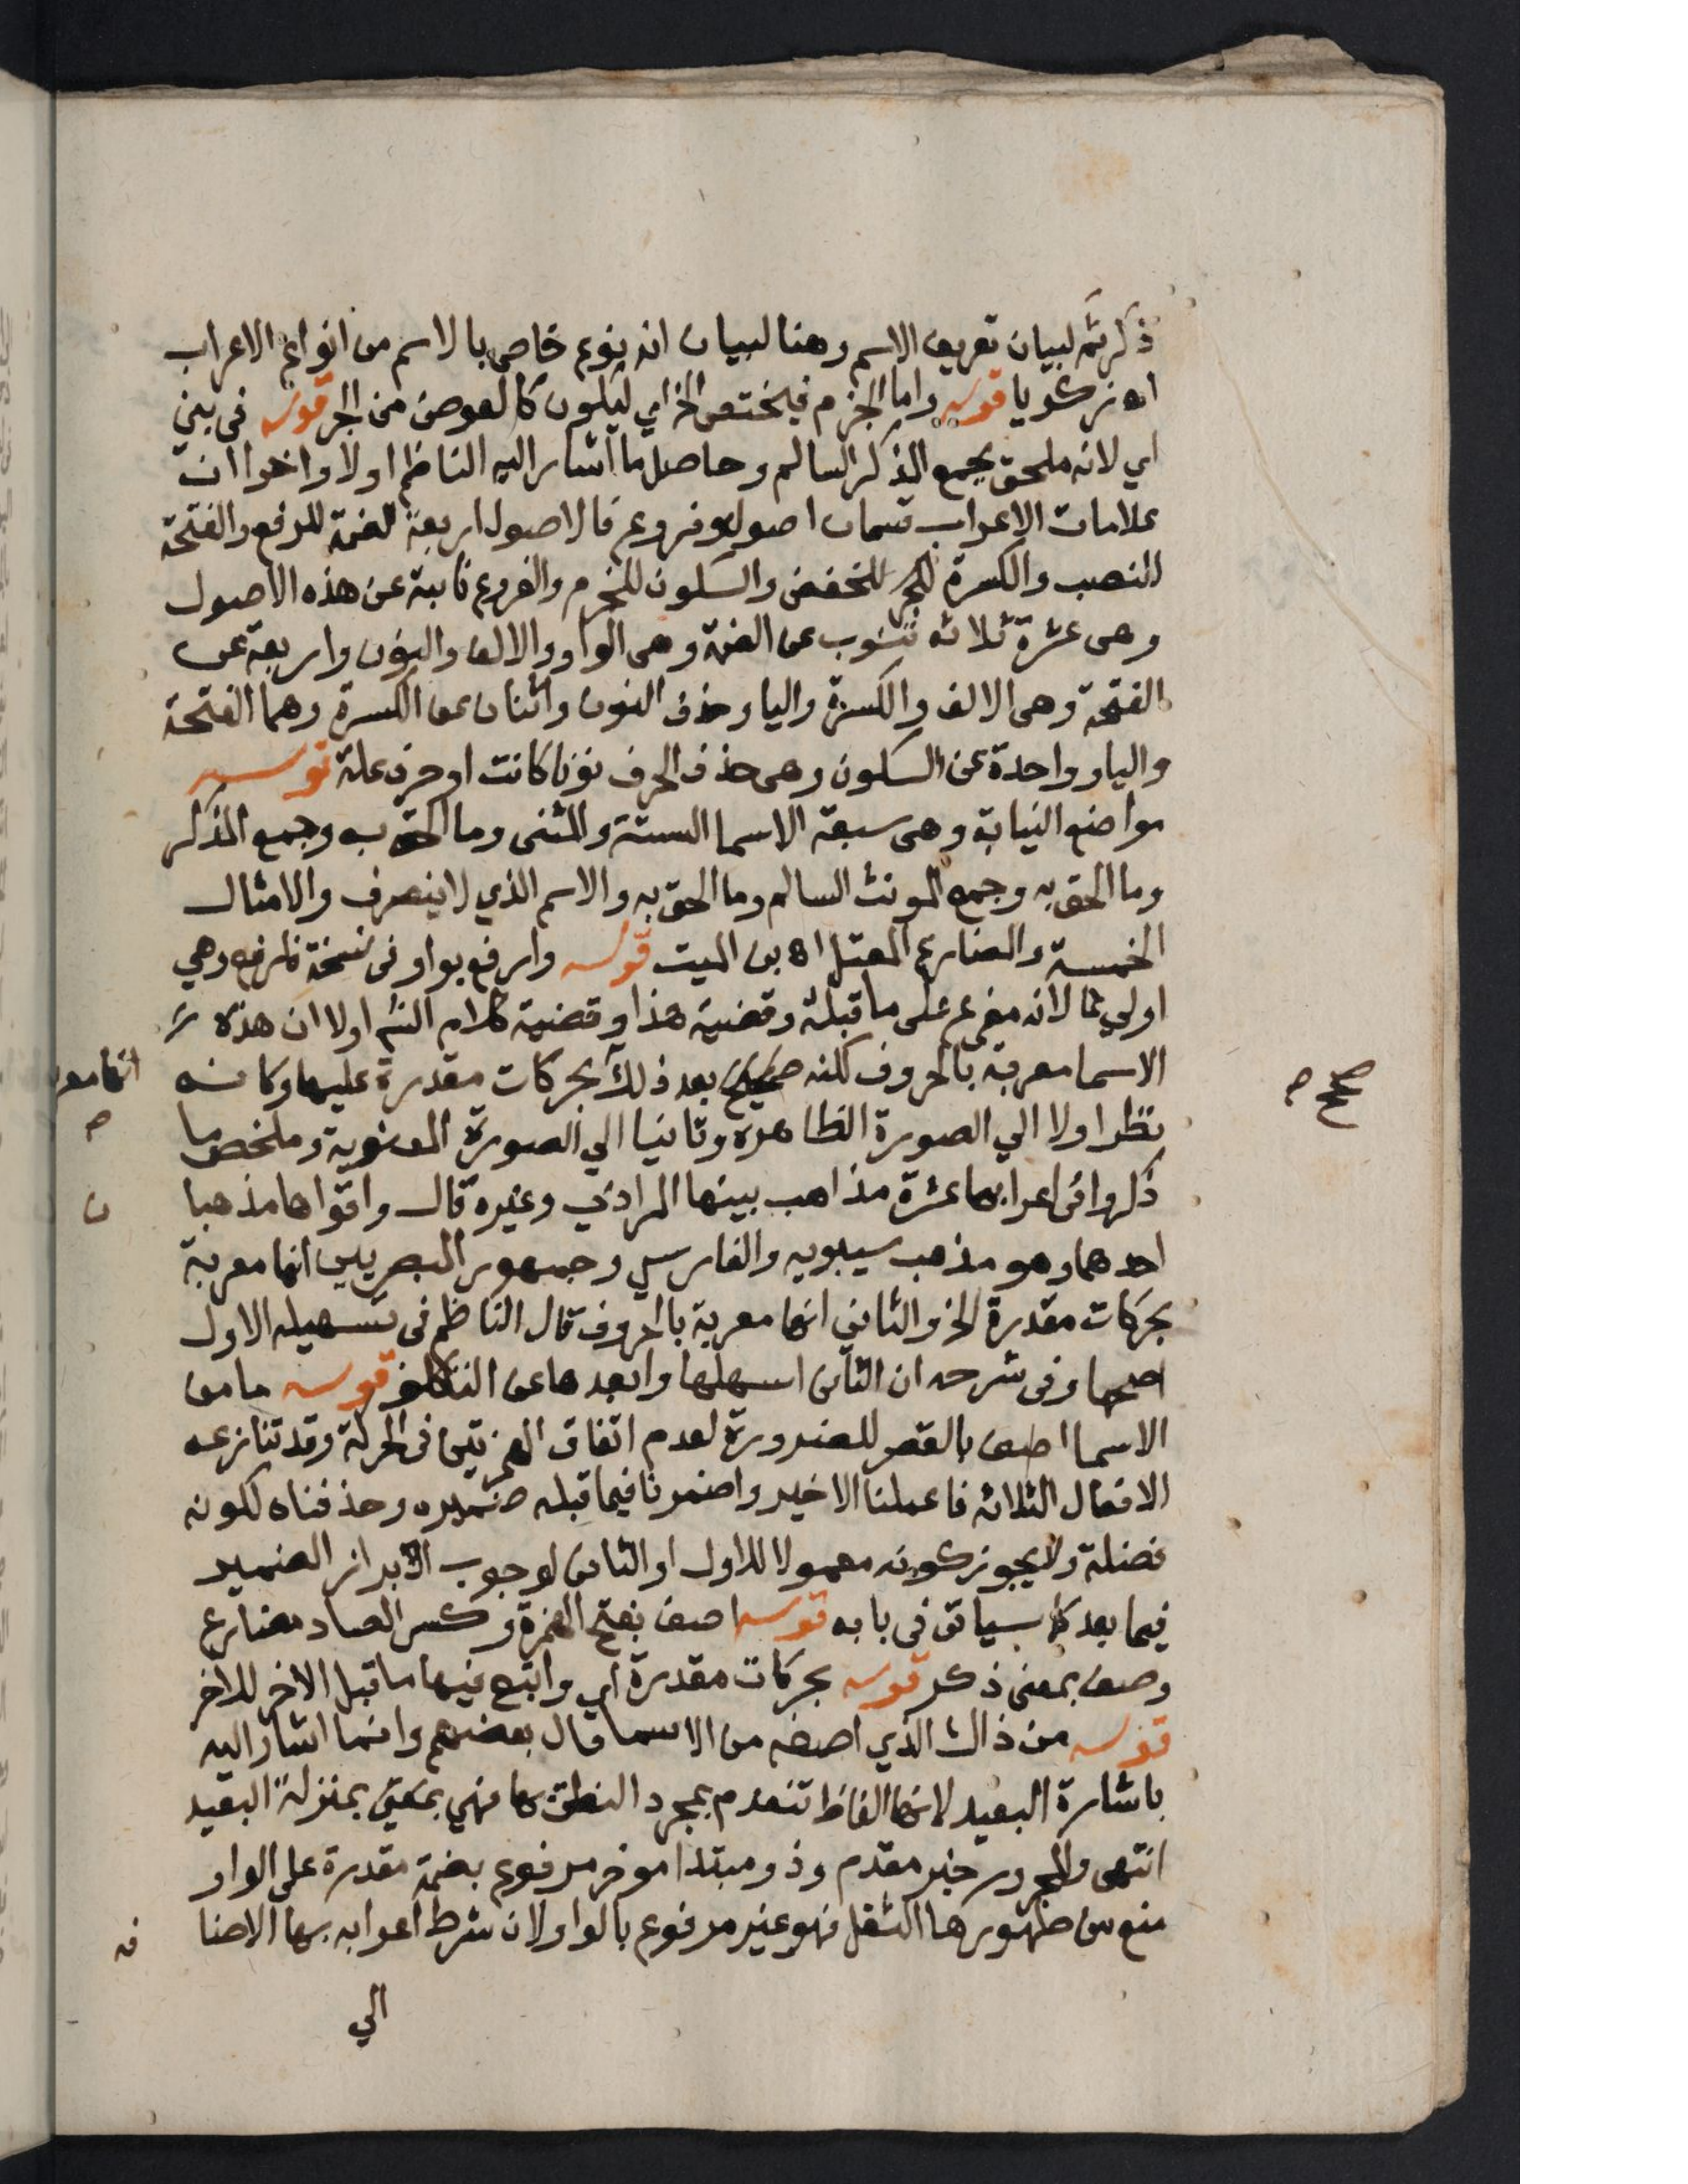 ذكر ثم لبيان تعريف الاسم وهنا لبيان انه نوع خاص بالاسم من انواع الاعراب
اه زكويا قوله واما الجزم فيختص الخ اي ليكون كالعوض من الجر قوله في بني
اي لانه ملحق بجمع المذكر السالم وحاصل ما اشار اليه الناظم اولا واخرا ان
علامات الاعراب قسمان اصول وفروع فالاصول اربعة الضمة للرفع والفتحة
للنصب والكسرة للجر للخفض والسكون للجزم والفروع نايبة عن هذه الاصول
وهي عشرة ثلاثة تنوب عن الضمة وهي الواو والالف والنون واربعة عن
الفتحة وهي الالف والكسرة واليا وحذف النون واثنان عن الكسرة وهما الفتحة
واليا وواحدة عن السكون وهي حذف الحرف نونا كانت او حرف علة قوله
مواضع النيابة وهي سبعة الاسما الستة والمثنى وما الحق به وجمع المذكر
وما الحق به وجمع المونث السالم وما الحق به والاسم الذي لا ينصرف والامثال
الخمسة والمضارع المعتل اه بن الميت قوله وارفع بواو في نسخة فارفع وهي
اولي لانه مفرع على ما قبله وقضية هذا وقضية كلام الش اولا ان هذه
الاسما معربة بالحروف لكنه صحح بعد ذلك بحركات مقدرة عليها وكانه
انها معر
صح
نظر اولا الي الصورة الظاهرة وثانيا الي الصورة المعنوية وملخص ما
ذكروا في اعرابها عشرة مذاهب بينها المرادي وغيره قال واقواها مذهبا
ن
احدهما وهو مذهب سيبويه والفارسي وجمهور البصريين انها معربة
بحركات مقدرة الخ والثاني انها معربة بالحروف قال الناظم في تسهيله الاول
اصحها وفي شرحه ان الثاني اسهلها وابعدها عن التكلف قوله ما من
الاسما اصف بالقصر للضرورة لعدم اتفاق الهمزتين في الحركة وقد تنازعه
الافعال الثلاثة فاعملنا الاخير واضمرنا فيما قبله ضميره وحذفناه لكونه
فضلة ولا يجوز كونه معمولا للاول او الثاني لوجوب الابراز الضمير
فيما بعد كما سياتي في بابه قوله اصف بفتح الهمزة وكسر الصاد مضارع
وصف بمعنى ذكر قوله بحركات مقدرة اي واتبع فيها ما قبل الاخر للاخر
قوله من ذاك الذي اصفه من الاسما قال بعضهم وانما اشار اليه
باشارة البعيد لانها الفاظ تنعدم بمجرد النطق بها فهي بمعنى بمنزلة البعيد
انتهى والمجرور خبر مقدم وذو مبتدا موخر مرفوع بضمة مقدرة على الواو
منع من ظهورها الثقل فهو غير مرفوع بالواو لان شرط اعرابه بها الاضا
فه
الي